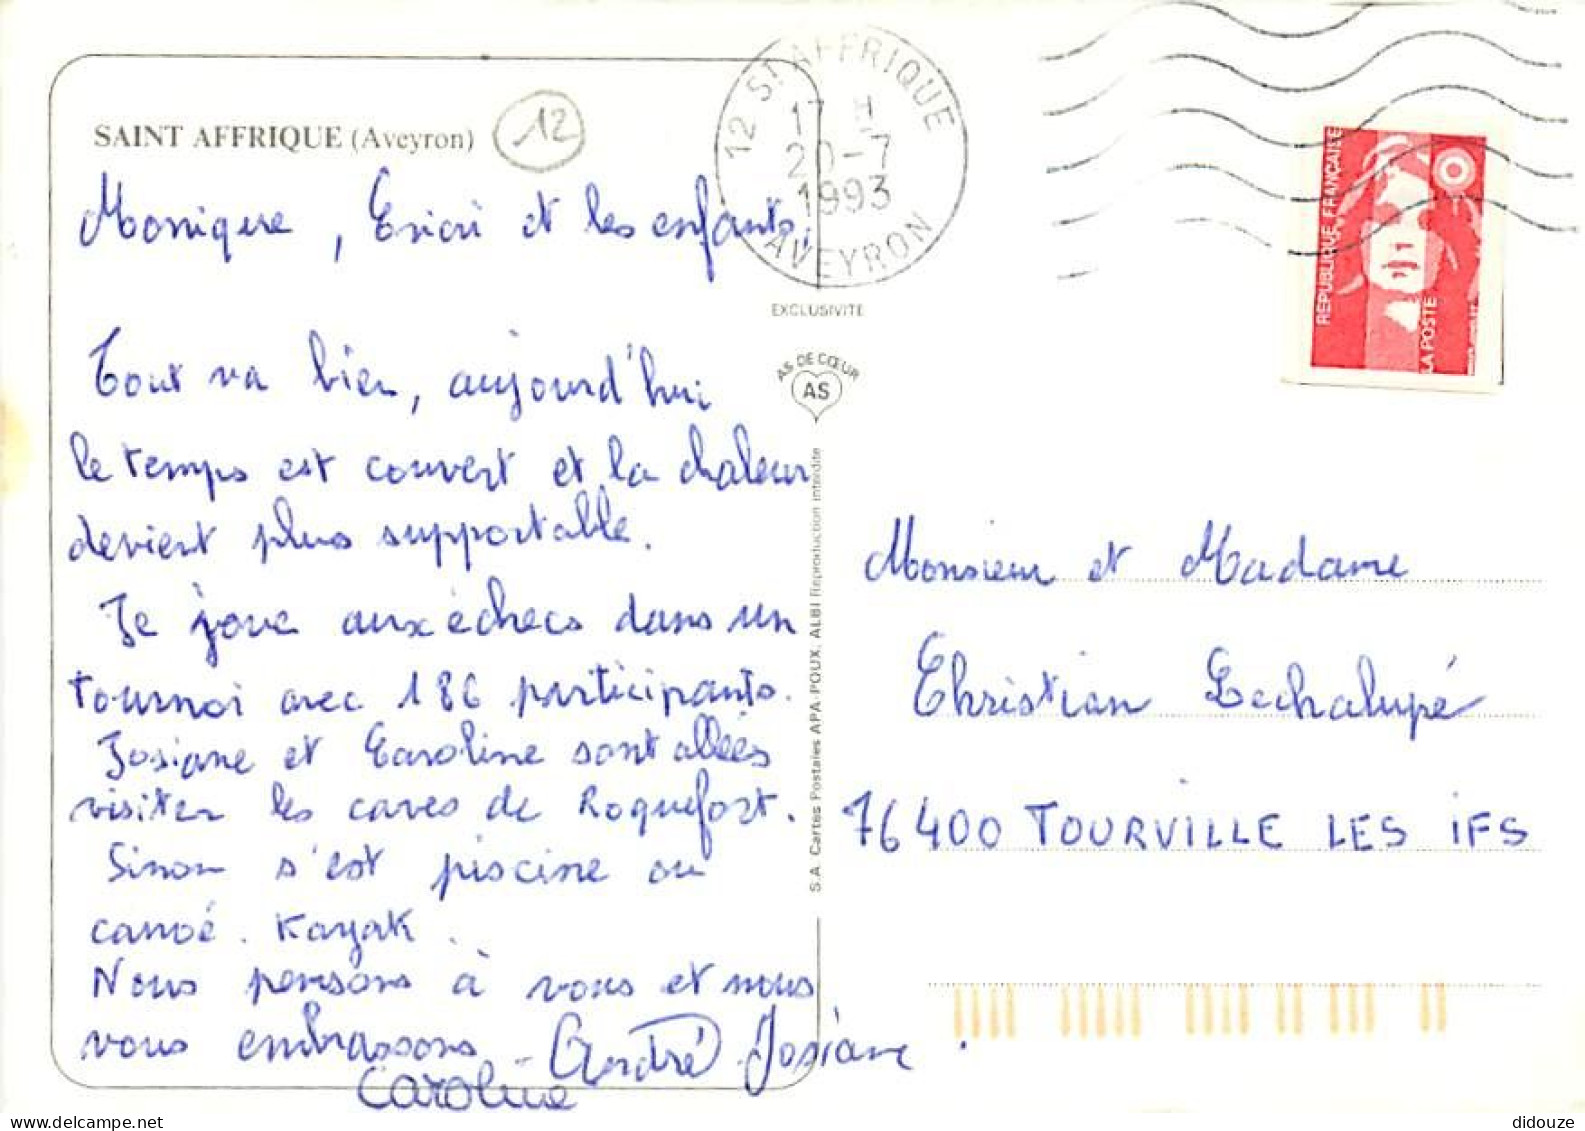 SAINT AFFRIQUE (Aveyron)
12
Monique, et les enfants,
Tout va bien, aujourd'hui
le temps est couvert et la chaleur
devient plus supportable.
Je joue aux échecs dans un
tournoi avec 186 participants.
Josiane et Caroline sont allées
visiter les caves de Roquefort.
Sinon s'est piscine ou
canoé. Kayak.
Nous pensons à vous et nous
vous embrassons. André Josiane.
Caroline
12 ST AFFRIQUE
17 H
20-7
1993
AVEYRON
EXCLUSIVITE
AS DE CŒUR
AS
S.A. Cartes Postales APA-POUX, ALBI Reproduction interdite
REPUBLIQUE FRANÇAISE
LA POSTE
Monsieur et Madame
Christian Lechalupé
76400 TOURVILLE LES IFS
didouze